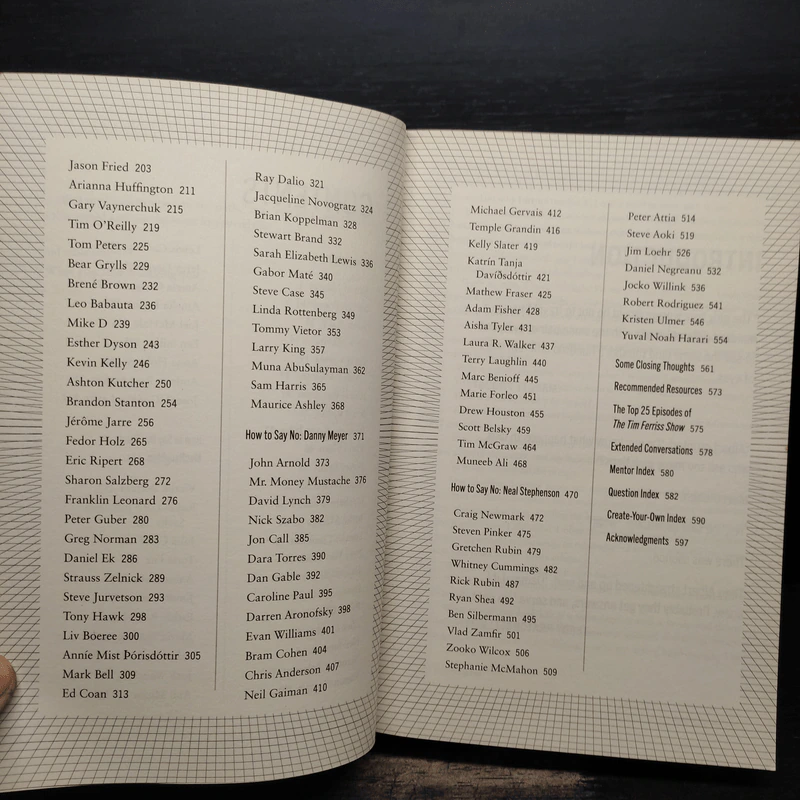 Jason Fried 203
Arianna Huffington 211
Gary Vaynerchuk 215
Tim O'Reilly 219
Tom Peters 225
Bear Grylls 229
Brené Brown 232
Leo Babauta 236
Mike D 239
Esther Dyson 243
Kevin Kelly 246
Ashton Kutcher 250
Brandon Stanton 254
Jérôme Jarre 256
Fedor Holz 265
Eric Ripert 268
Sharon Salzberg 272
Franklin Leonard 276
Peter Guber 280
Greg Norman 283
Daniel Ek 286
Strauss Zelnick 289
Steve Jurvetson 293
Tony Hawk 298
Liv Boeree 300
Anníe Mist Þórisdóttir 305
Mark Bell 309
Ed Coan 313
Ray Dalio 321
Jacqueline Novogratz 324
Brian Koppelman 328
Stewart Brand 332
Sarah Elizabeth Lewis 336
Gabor Maté 340
Steve Case 345
Linda Rottenberg 349
Tommy Vietor 353
Larry King 357
Muna AbuSulayman 362
Sam Harris 365
Maurice Ashley 368
How to Say No: Danny Meyer 371
John Arnold 373
Mr. Money Mustache 376
David Lynch 379
Nick Szabo 382
Jon Call 385
Dara Torres 390
Dan Gable 392
Caroline Paul 395
Darren Aronofsky 398
Evan Williams 401
Bram Cohen 404
Chris Anderson 407
Neil Gaiman 410
Michael Gervais 412
Temple Grandin 416
Kelly Slater 419
Katrín Tanja
Davíðsdóttir 421
Mathew Fraser 425
Adam Fisher 428
Aisha Tyler 431
Laura R. Walker 437
Terry Laughlin 440
Marc Benioff 445
Marie Forleo 451
Drew Houston 455
Scott Belsky 459
Tim McGraw 464
Muneeb Ali 468
How to Say No: Neal Stephenson 470
Craig Newmark 472
Steven Pinker 475
Gretchen Rubin 479
Whitney Cummings 482
Rick Rubin 487
Ryan Shea 492
Ben Silbermann 495
Vlad Zamfir 501
Zooko Wilcox 506
Stephanie McMahon 509
Peter Attia 514
Steve Aoki 519
Jim Loehr 526
Daniel Negreanu 532
Jocko Willink 536
Robert Rodriguez 541
Kristen Ulmer 546
Yuval Noah Harari 554
Some Closing Thoughts 561
Recommended Resources 573
The Top 25 Episodes of
The Tim Ferriss Show 575
Extended Conversations 578
Mentor Index 580
Question Index 582
Create-Your-Own Index 590
Acknowledgments 597